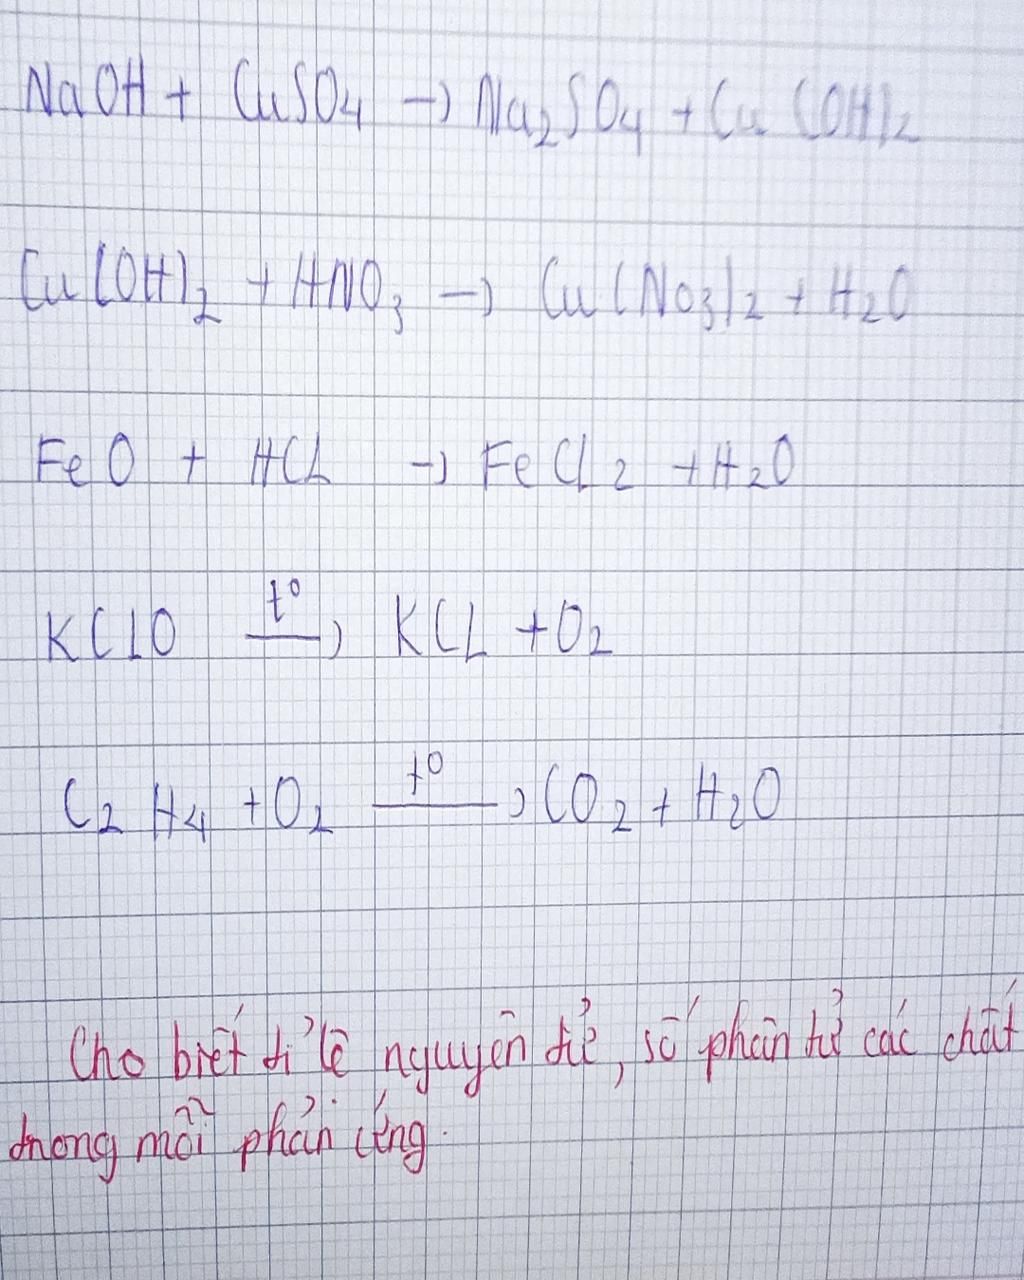 NaOH + CuSO4 → Na2SO4 + Cu (OH)2
Cu(OH)2 + HNO3 → Cu(NO3)2 + H2O
FeO + HCL → FeCL2 + H2O
KClO t° → KCL + O2
C2H4 + O2 t° → CO2 + H2O
Cho biết tỉ lệ nguyên tử, số phân tử các chất
trong mỗi phản ứng.